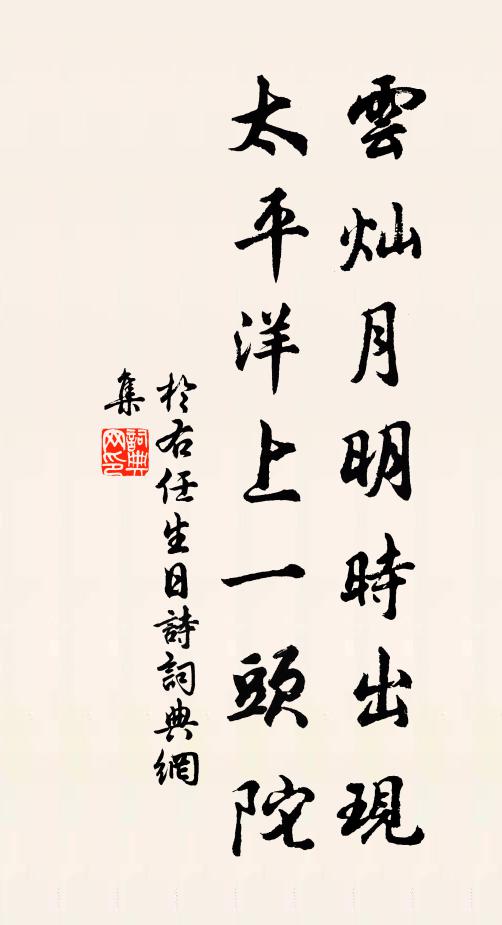 雲灿月明時出現
太平洋上一頭陀
於右任生日詩詞典網
集
詞典網印